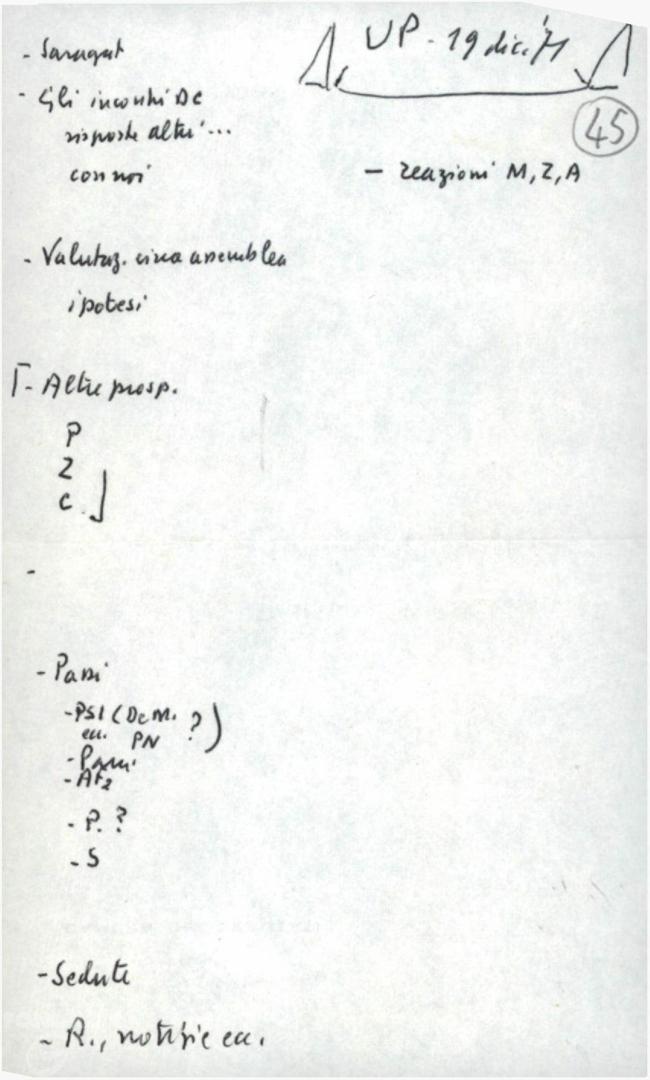 UP - 19 dic. '71
45
- Saragat
- Gli incontri DC
risposte altri ...
con noi
- reazioni M, Z, A
- Valutaz. circa assemblea
ipotesi
- Altre prosp.
P
Z
C
-
- Passi
- PSI (De M. ?)
ecc. PN
- Parri
- P. ?
- S
- Sedute
- R., notizie ecc.